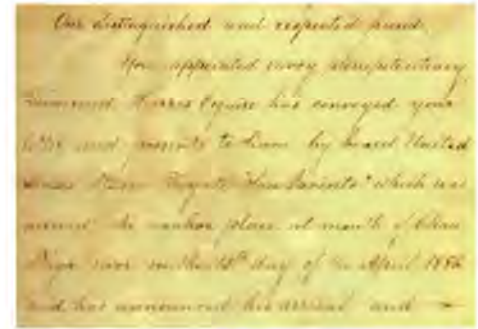 Our distinguished and respected friend.
Your appointed envoy plenipotentiary
Townsend Harris Esquire has conveyed your
letter and presents to Siam by board United
States Steam Frigate "San Jacinto" which was
arrived the anchor place at mouth of Chau
River on the 13th day of the April 1856
and has announced his arrival and